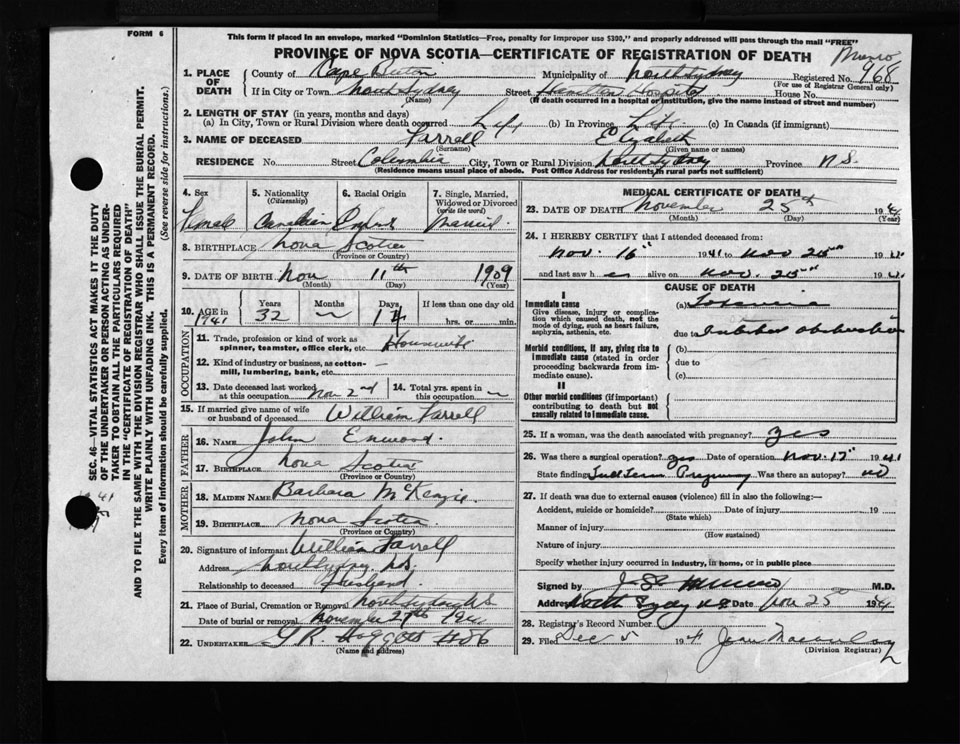 FORM 6
This form if placed in an envelope, marked "Dominion Statistics—Free, penalty for improper use $300," and properly addressed will pass through the mail "FREE"
PROVINCE OF NOVA SCOTIA—CERTIFICATE OF REGISTRATION OF DEATH
Munro
968
1. PLACE OF DEATH
County of Cape Breton Municipality of North Sydney Registered No.
(For use of Registrar General only)
If in City or Town North Sydney Street Hamilton Hospital House No.
(Name) (If death occurred in a hospital or institution, give the name instead of street and number)
2. LENGTH OF STAY (in years, months and days)
(a) In City, Town or Rural Division where death occurred Life (b) In Province Life (c) In Canada (if immigrant)
3. NAME OF DECEASED Farrell Elizabeth
(Surname) (Given name or names)
RESIDENCE No. Street Columbia City, Town or Rural Division North Sydney Province N.S.
(Residence means usual place of abode. Post Office Address for residents in rural parts not sufficient)
4. Sex Female
5. Nationality (Citizenship) Canadian
6. Racial Origin
7. Single, Married, Widowed or Divorced (write the word) Married
8. BIRTHPLACE Nova Scotia
(Province or Country)
9. DATE OF BIRTH Nov 11th 1909
(Month) (Day) (Year)
10. AGE in 1941
Years 32 Months ~ Days 14 If less than one day old
hrs. or min.
OCCUPATION
11. Trade, profession or kind of work as spinner, teamster, office clerk, etc. Housewife
12. Kind of industry or business, as cotton-mill, lumbering, bank, etc. —
13. Date deceased last worked at this occupation Nov 2nd
14. Total yrs. spent in this occupation ~
15. If married give name of wife or husband of deceased William Farrell
FATHER
16. NAME John
17. BIRTHPLACE Nova Scotia
(Province or Country)
MOTHER
18. MAIDEN NAME Barbara McKenzie
19. BIRTHPLACE Nova Scotia
(Province or Country)
20. Signature of informant William Farrell
Address North Sydney N.S.
Relationship to deceased Husband
21. Place of Burial, Cremation or Removal North Sydney N.S.
Date of burial or removal November 27th 1941
22. UNDERTAKER G R
(Name and address)
MEDICAL CERTIFICATE OF DEATH
23. DATE OF DEATH November 25th 1941
(Month) (Day) (Year)
24. I HEREBY CERTIFY that I attended deceased from:
Nov. 16" 1941 to Nov 25th 1941
and last saw her alive on Nov. 25th 1941
CAUSE OF DEATH
I
Immediate cause
Give disease, injury or complication which caused death, not the mode of dying, such as heart failure, asphyxia, asthenia, etc.
(a) Toxaemia
due to
Morbid conditions, if any, giving rise to immediate cause (stated in order proceeding backwards from immediate cause).
(b)
due to
(c)
II
Other morbid conditions (if important) contributing to death but not causally related to immediate cause.
25. If a woman, was the death associated with pregnancy? yes
26. Was there a surgical operation? yes Date of operation Nov. 17" 1941
State finding Full Term Pregnancy Was there an autopsy? no
27. If death was due to external causes (violence) fill in also the following:—
Accident, suicide or homicide? Date of injury 19
(State which)
Manner of injury
(How sustained)
Nature of injury
Specify whether injury occurred in industry, in home, or in public place
Signed by Munro M.D.
Address North Sydney N.S. Date Nov 25 1941
28. Registrar's Record Number
29. Filed Dec 5 1941 Jean
(Division Registrar)
SEC. 46—VITAL STATISTICS ACT MAKES IT THE DUTY
OF THE UNDERTAKER OR PERSON ACTING AS UNDER-
TAKER TO OBTAIN ALL THE PARTICULARS REQUIRED
IN THE "CERTIFICATE OF REGISTRATION OF DEATH"
AND TO FILE THE SAME WITH THE DIVISION REGISTRAR WHO SHALL ISSUE THE BURIAL PERMIT.
WRITE PLAINLY WITH UNFADING INK. THIS IS A PERMANENT RECORD.
Every item of information should be carefully supplied. (See reverse side for instructions).